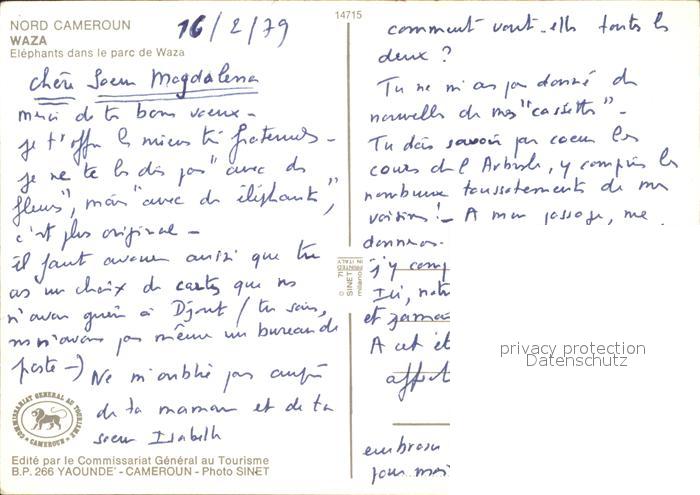 NORD CAMEROUN
WAZA
Eléphants dans le parc de Waza
14715
16/2/79
Chère Soeur Magdalena
merci de tes bons voeux -
je t'offre les miens très fraternels -
je ne te les dis pas "avec des
fleurs", mais "avec des éléphants",
c'est plus original -
il faut avouer aussi que tu
as un choix de cartes que ns
n'avons guère à Djout / tu sais,
ns n'avons pas même un bureau de
poste -)
Ne m'oublie pas auprès
de ta maman et de ta
soeur Isabelle
COMMISSARIAT GÉNÉRAL AU TOURISME
CAMEROUN
Edité par le Commissariat Général au Tourisme
B.P. 266 YAOUNDE' - CAMEROUN - Photo SINET
PRINTED IN ITALY
SINET
milano
comment vont-elles toutes les
deux ?
Tu ne m'as pas donné de
nouvelles de mes "cassettes" -
Tu dois savoir par coeur les
cours de l'Arbresle, y compris les
nombreux toussotements de mes
voisins ! - A mon passage, me
donneras
j'y comp
Ici, notr
et jamai
A cet ét
affect
embrasse
pour moi
privacy protection
Datenschutz